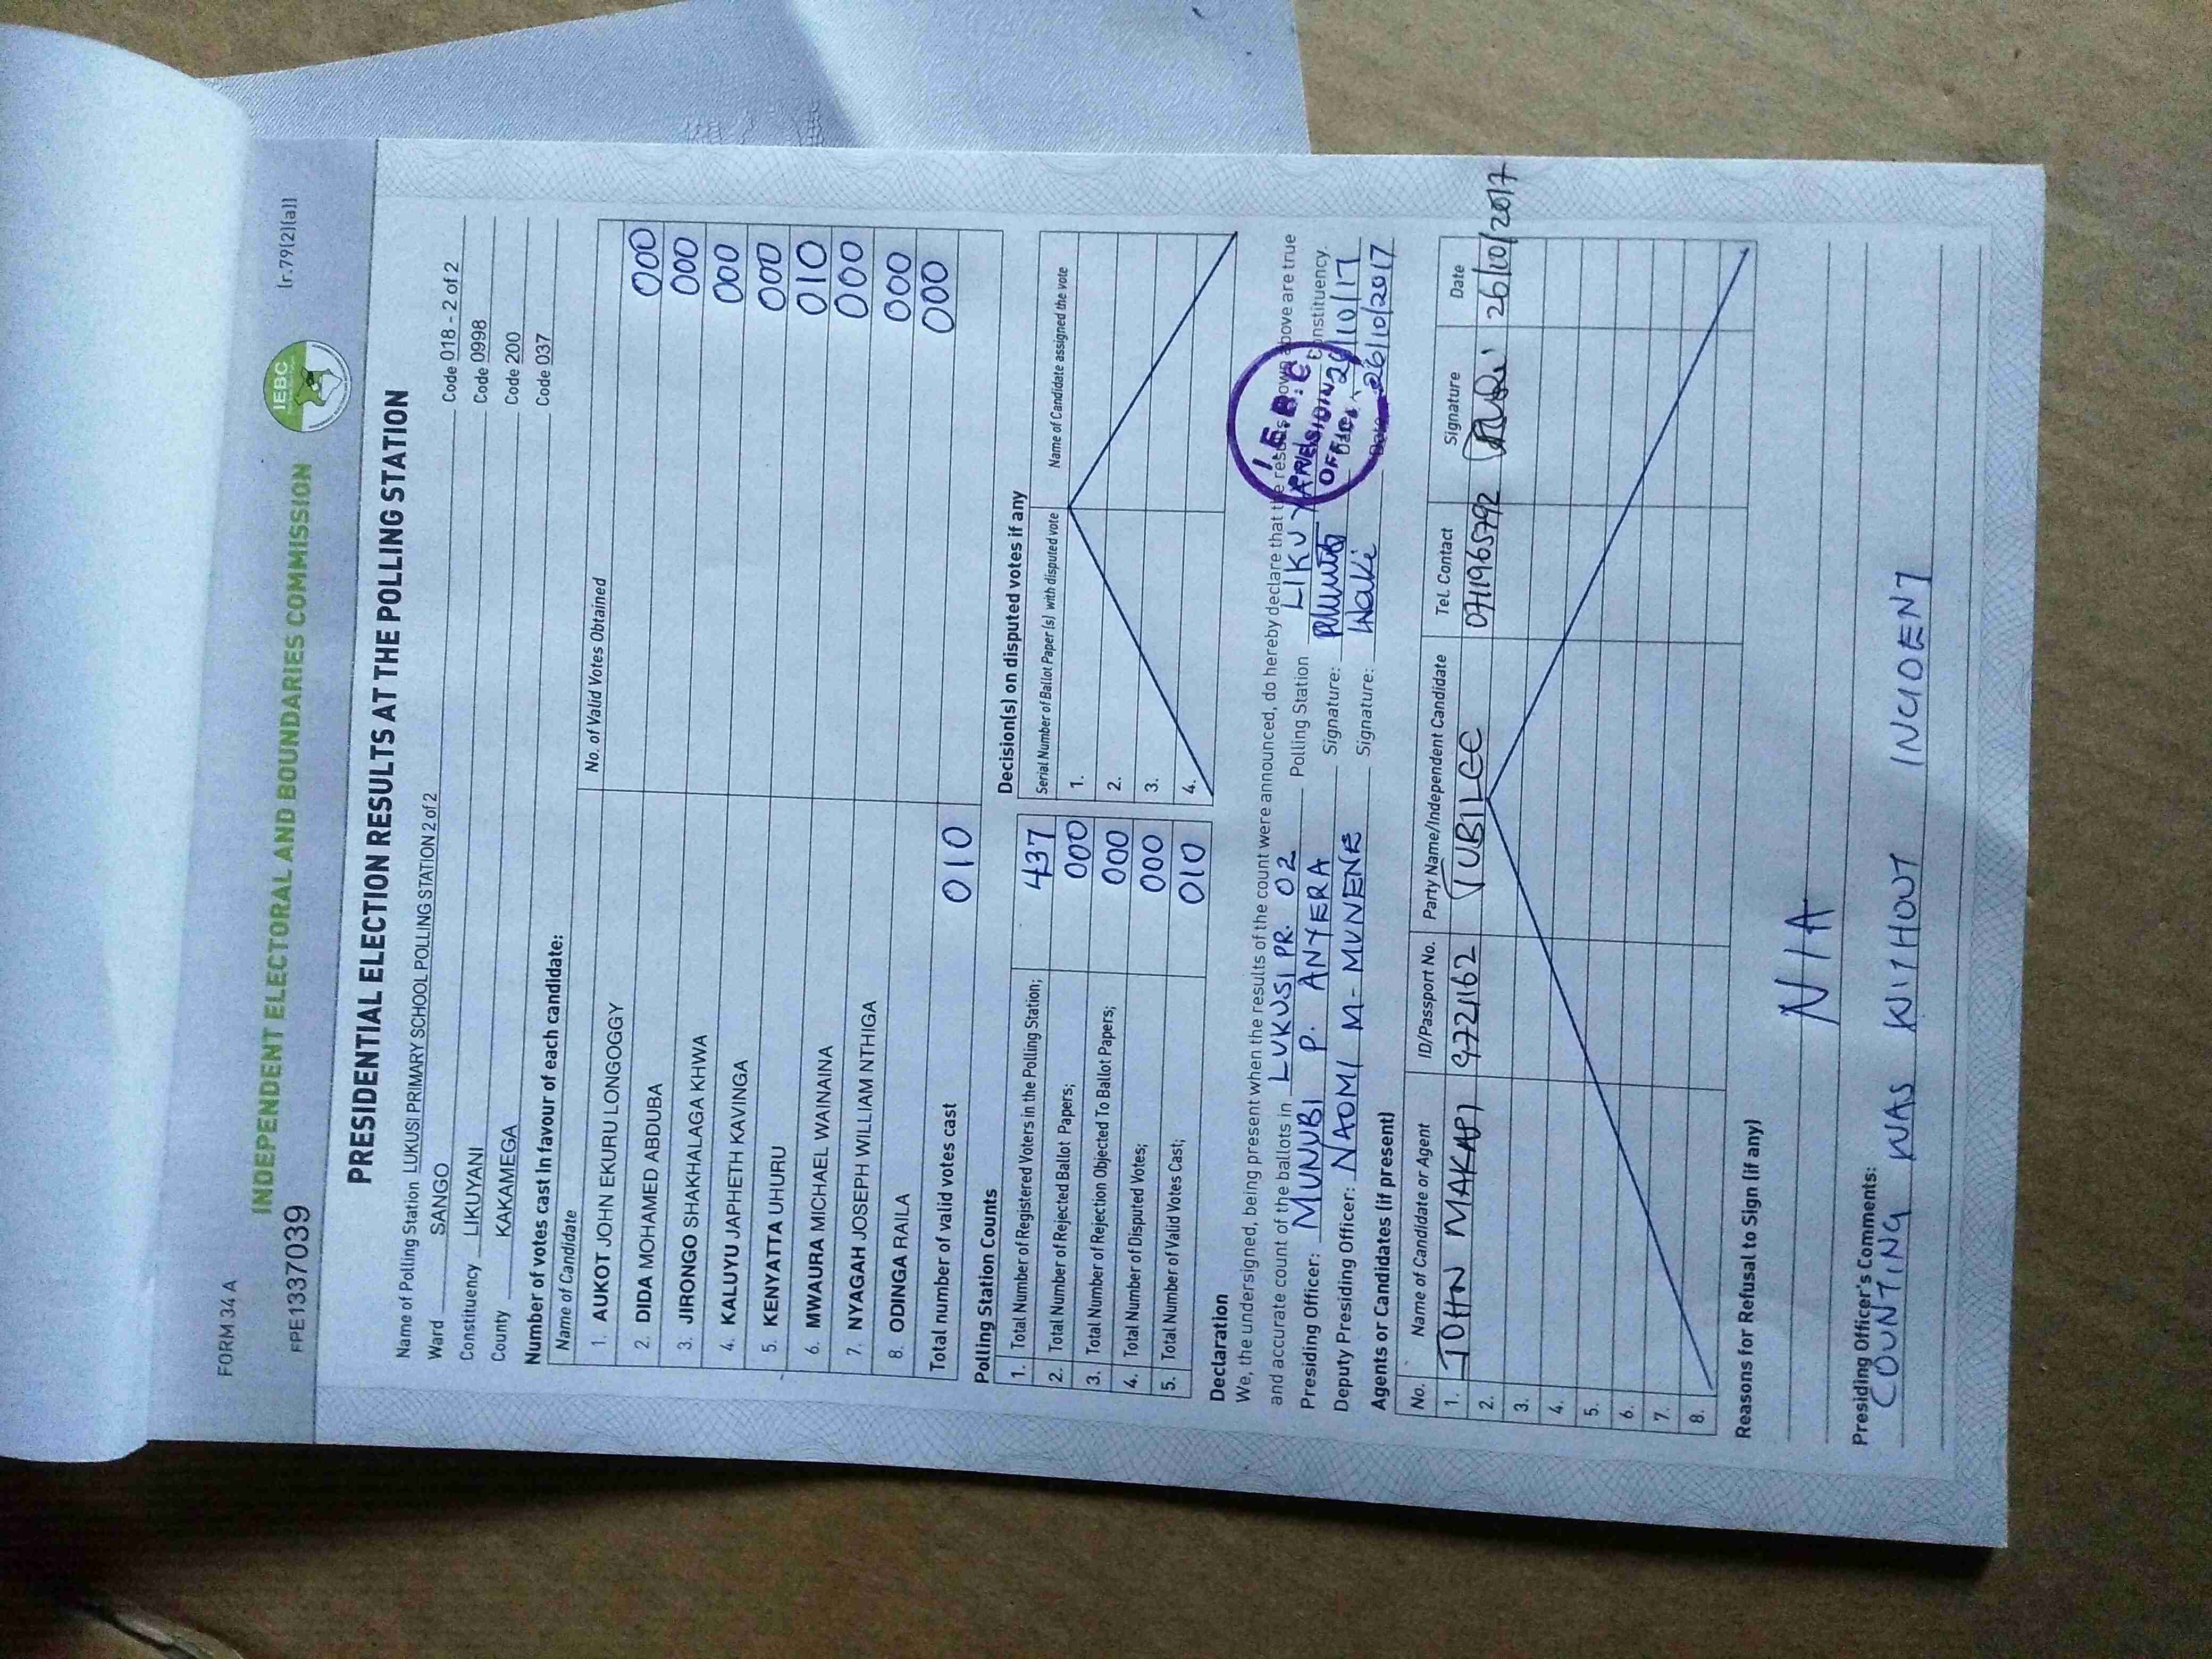 FORM 34 A
[r.79(2)(a)]
INDEPENDENT ELECTORAL AND BOUNDARIES COMMISSION
IEBC
FPE1337039
PRESIDENTIAL ELECTION RESULTS AT THE POLLING STATION
Name of Polling Station LUKUSI PRIMARY SCHOOL POLLING STATION 2 of 2 Code 018 - 2 of 2
Ward SANGO Code 0998
Constituency LIKUYANI Code 200
County KAKAMEGA Code 037
Number of votes cast in favour of each candidate:
Name of Candidate No. of Valid Votes Obtained
1. AUKOT JOHN EKURU LONGOGGY 000
2. DIDA MOHAMED ABDUBA 000
3. JIRONGO SHAKHALAGA KHWA 000
4. KALUYU JAPHETH KAVINGA 000
5. KENYATTA UHURU 010
6. MWAURA MICHAEL WAINAINA 000
7. NYAGAH JOSEPH WILLIAM NTHIGA 000
8. ODINGA RAILA 000
Total number of valid votes cast 010
Polling Station Counts
1. Total Number of Registered Voters in the Polling Station; 437
2. Total Number of Rejected Ballot Papers; 000
3. Total Number of Rejection Objected To Ballot Papers; 000
4. Total Number of Disputed Votes; 000
5. Total Number of Valid Votes Cast; 010
Decision(s) on disputed votes if any
Serial Number of Ballot Paper (s) with disputed vote Name of Candidate assigned the vote
1.
2.
3.
4.
Declaration
We, the undersigned, being present when the results of the count were announced, do hereby declare that the results shown above are true
and accurate count of the ballots in LUKUSI PR. 02 Polling Station LIKUYANI Constituency.
Presiding Officer: MUNUBI P. ANYERA Signature: Date: 26/10/17
Deputy Presiding Officer: NAOMI M- MUNENE Signature: Date: 26/10/2017
I.E.B.C
PRESIDING
OFFICER
Agents or Candidates (if present)
No. Name of Candidate or Agent ID/Passport No. Party Name/Independent Candidate Tel. Contact Signature Date
1. JOHN MAKAPI 9724162 JUBILEE 0711965792 26/10/2017
2.
3.
4.
5.
6.
7.
8.
Reasons for Refusal to Sign (if any)
N/A
Presiding Officer's Comments:
COUNTING WAS WITHOUT INCIDENT